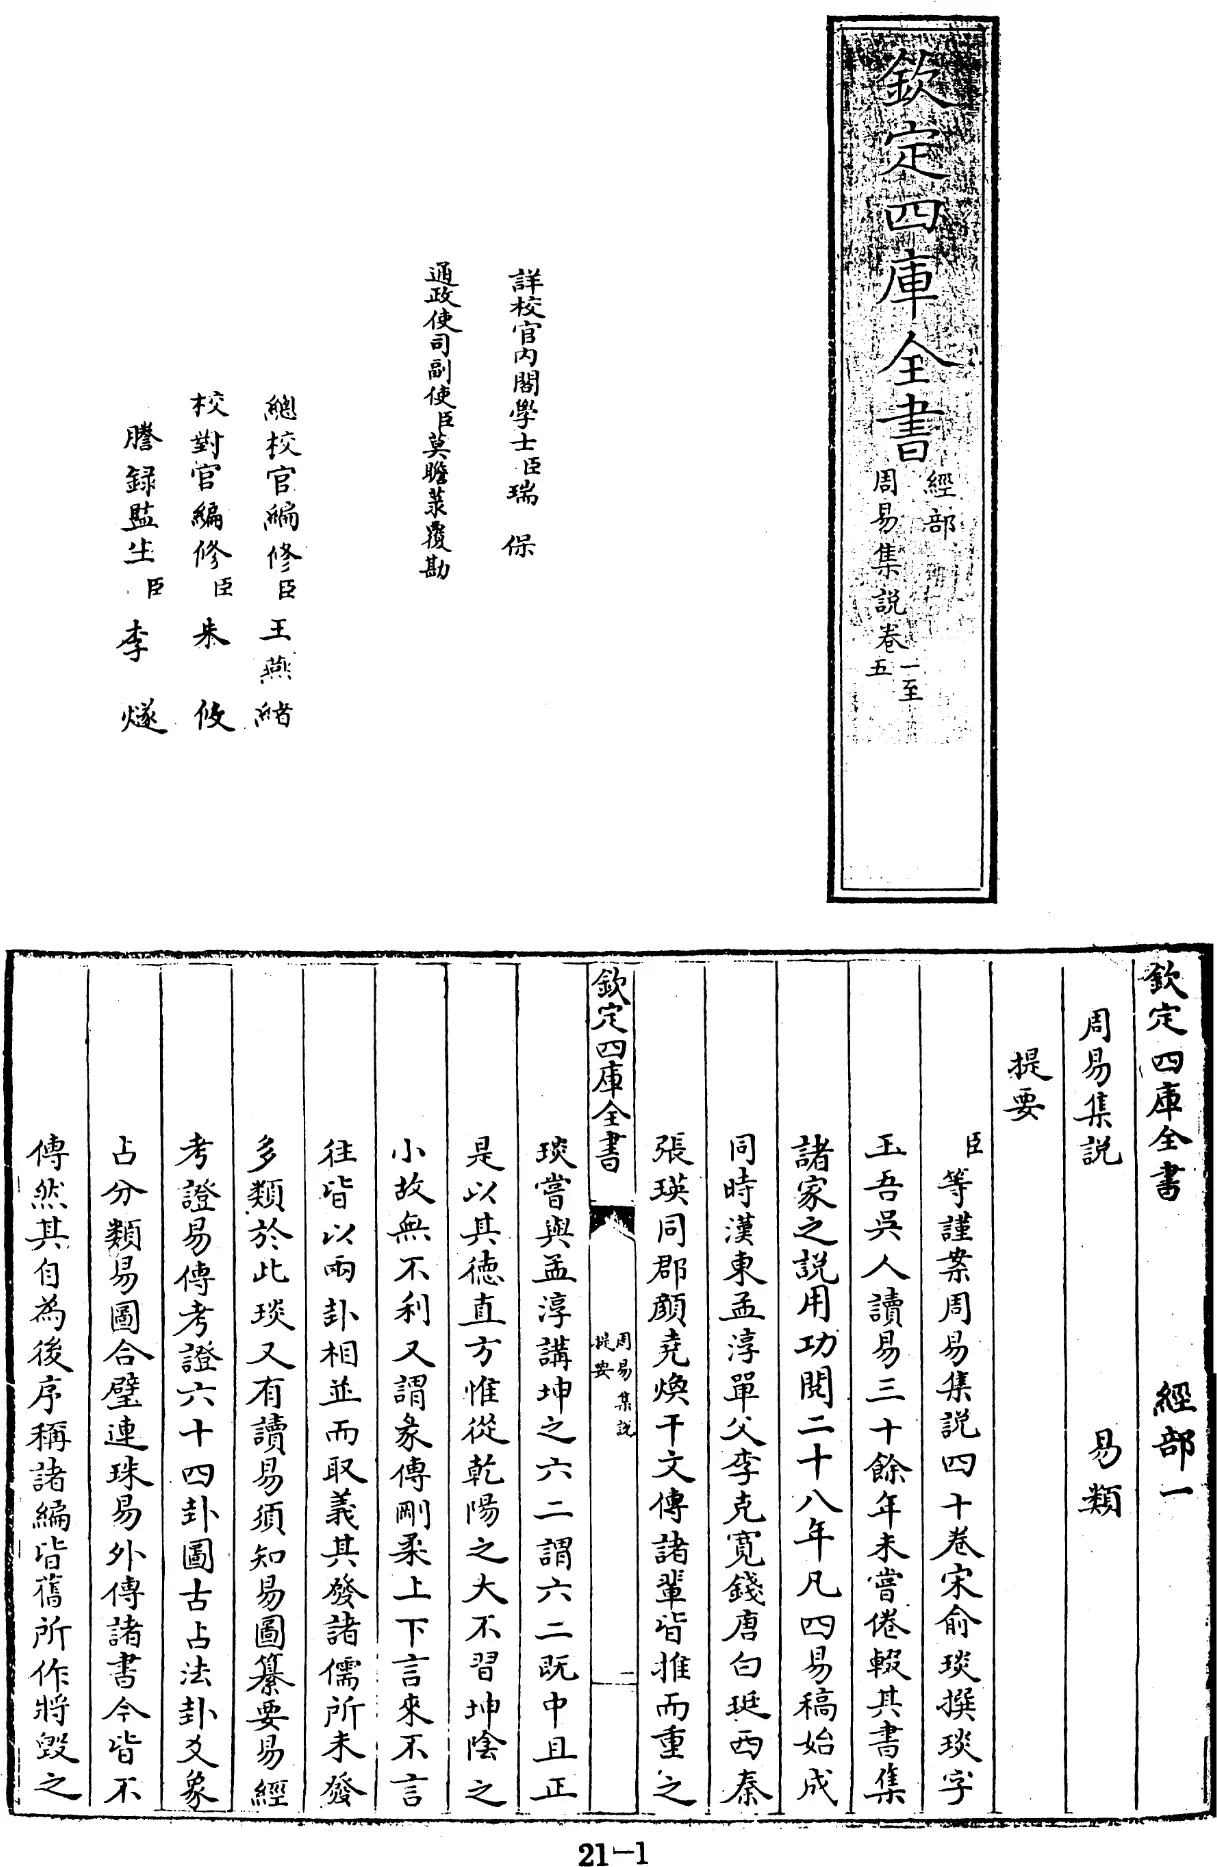 欽定四庫全書
經部
周易集説卷一至五
詳校官内閣學士臣瑞保
通政使司副使臣莫瞻菉覆勘
總校官編修臣王燕緒
校對官編修臣朱攸
謄録監生臣李燧
欽定四庫全書 經部一
周易集説 易類
提要
臣等謹案周易集説四十卷宋俞琰撰琰字
玉吾吳人讀易三十餘年未嘗倦輟其書集
諸家之説用功閱二十八年凡四易稿始成
同時漢東孟淳單父李克寛錢唐白珽西秦
張瑛同郡顔堯煥干文傳諸輩皆推而重之
欽定四庫全書
周易集説
提要
一
琰嘗與孟淳講坤之六二謂六二既中且正
是以其徳直方惟從乾陽之大不習坤陰之
小故無不利又謂彖傳剛柔上下言來不言
往皆以兩卦相並而取義其發諸儒所未發
多類於此琰又有讀易須知易圖纂要易經
考證易傳考證六十四卦圖古占法卦爻象
占分類易圖合璧連珠易外傳諸書今皆不
傳然其自為後序稱諸編皆舊所作將毁之
21-1